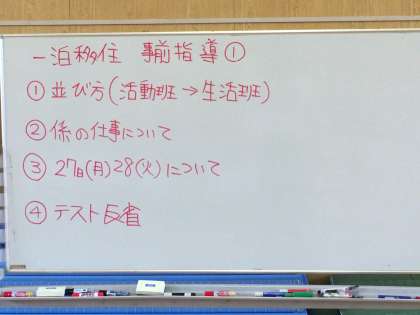 一泊移住 事前指導①
①並び方(活動班→生活班)
②係の仕事について
③27日(月)28(火)について
④テスト反省